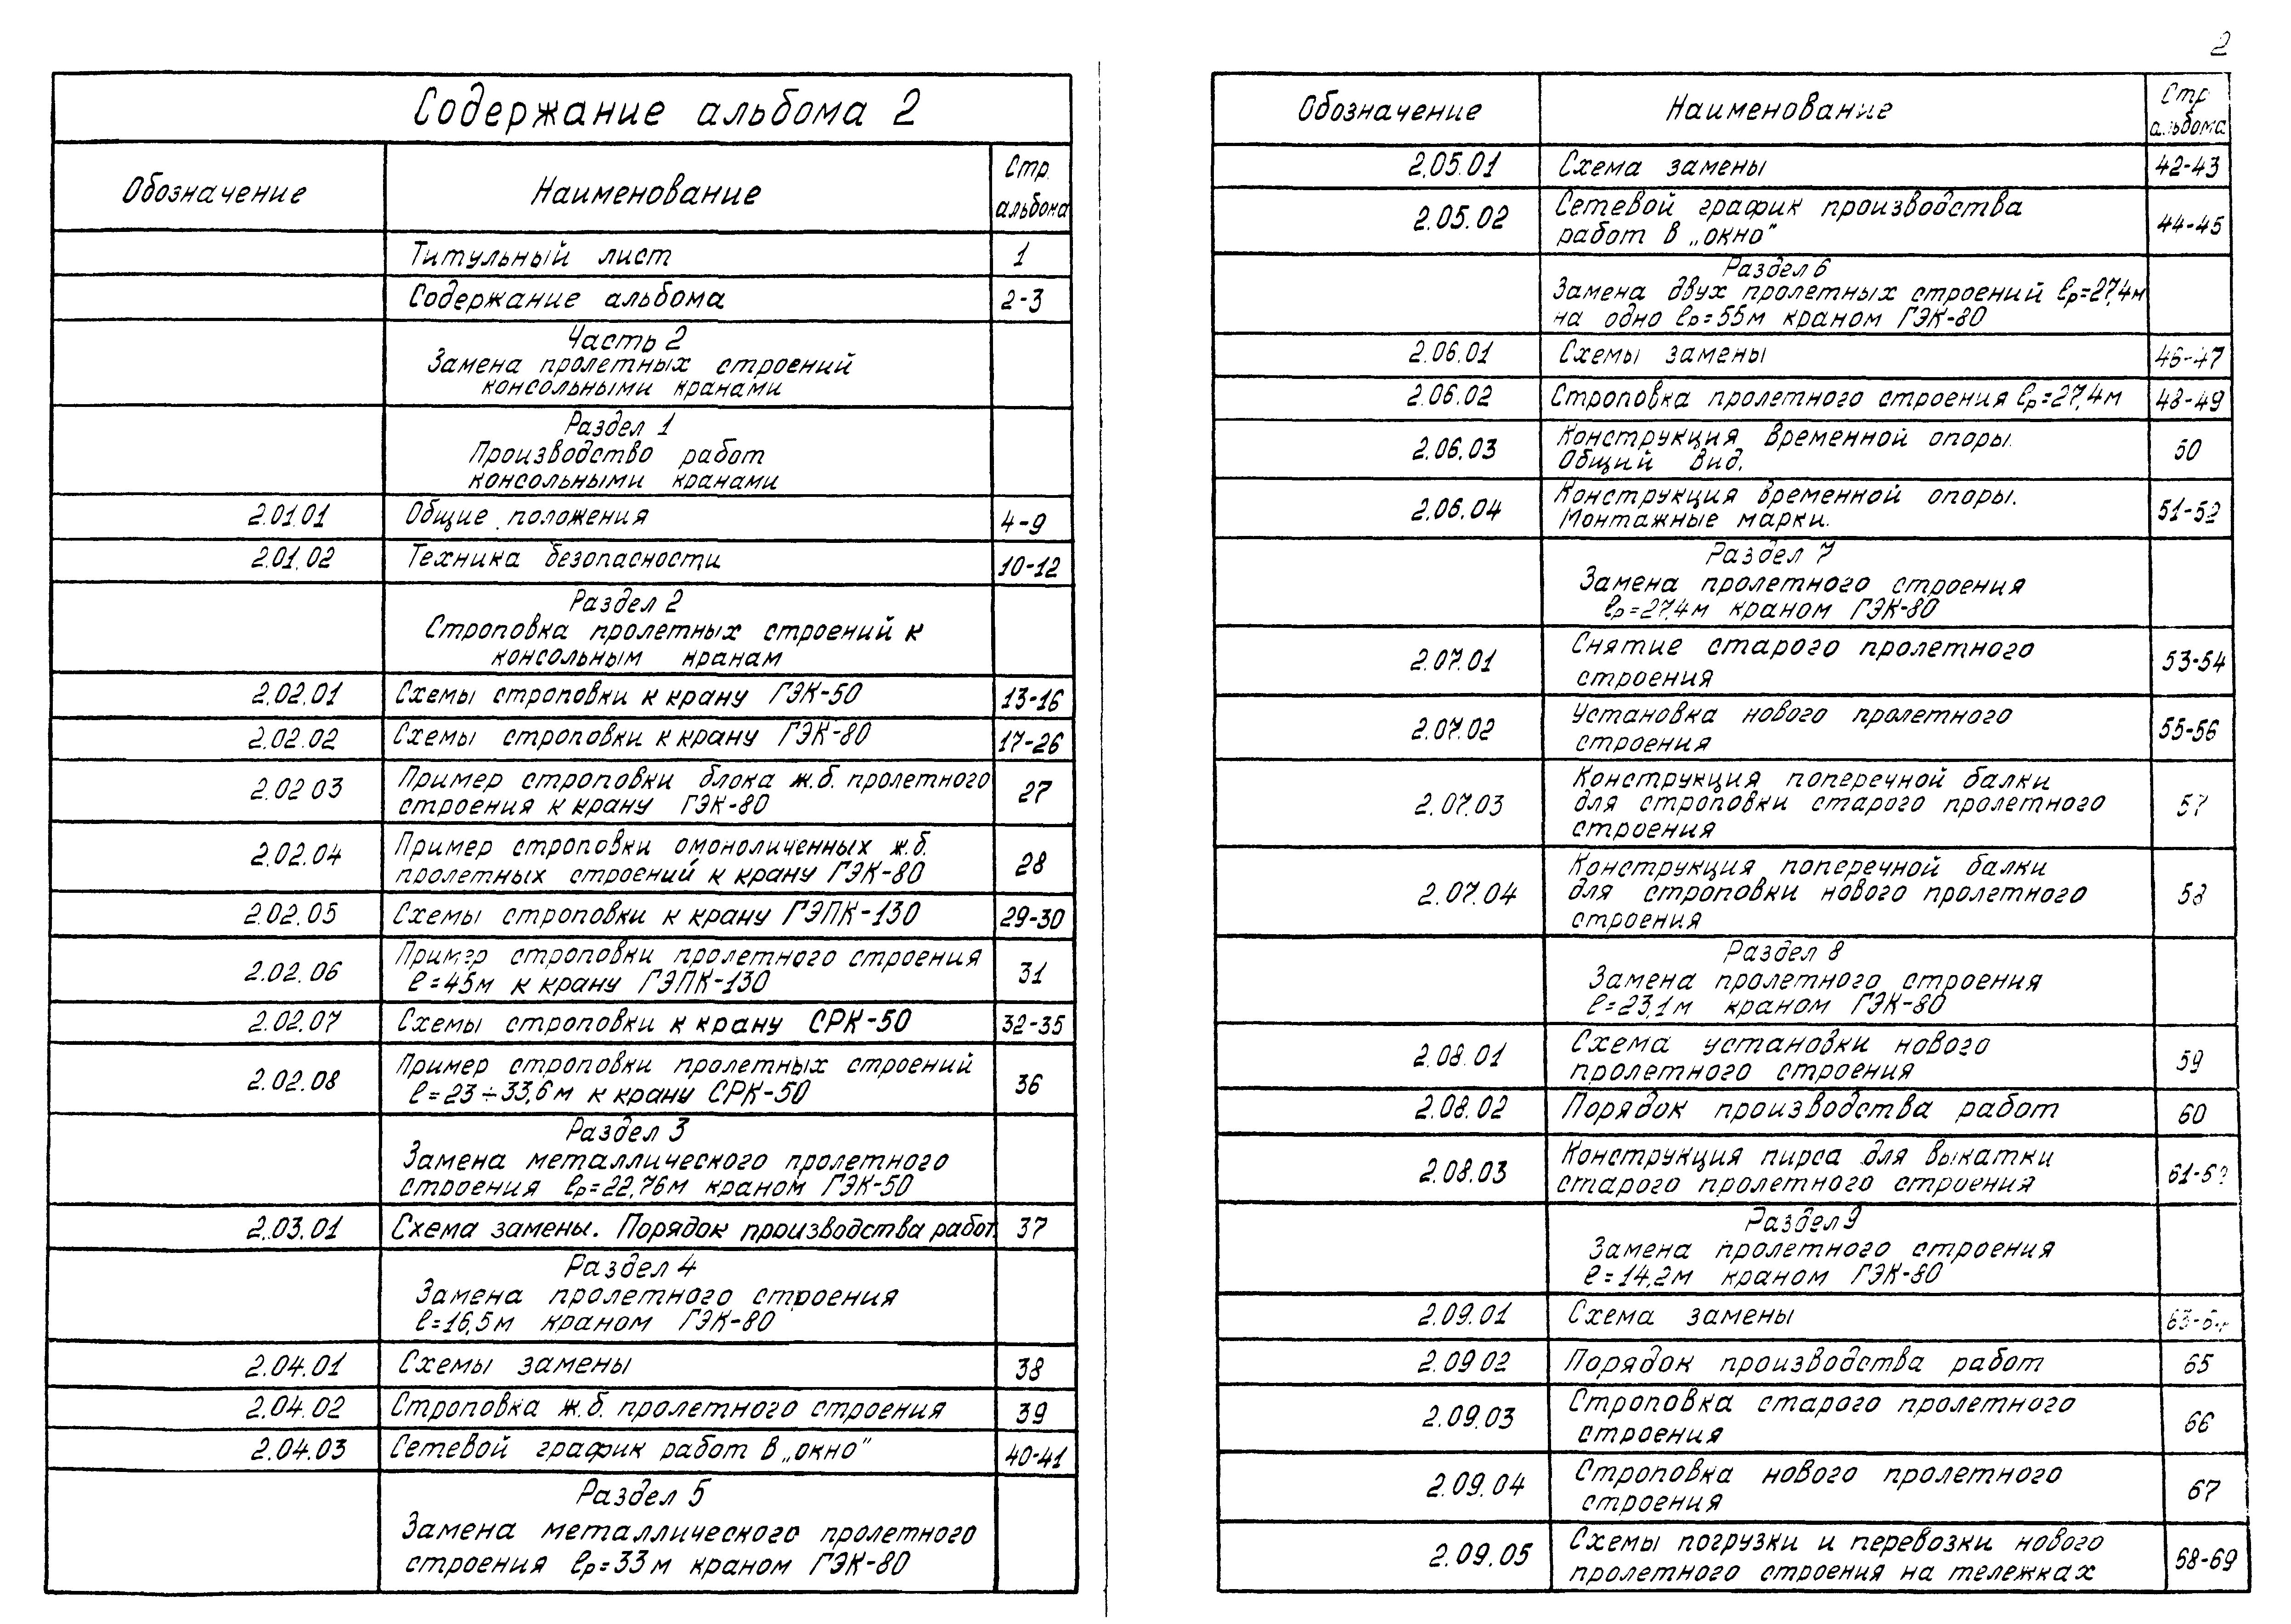 2
Содержание альбома 2
Обозначение Наименование Стр. альбома
Титульный лист 1
Содержание альбома 2-3
Часть 2
Замена пролетных строений
консольными кранами
Раздел 1
Производство работ
консольными кранами
2.01.01 Общие положения 4-9
2.01.02 Техника безопасности 10-12
Раздел 2
Строповка пролетных строений к
консольным кранам
2.02.01 Схемы строповки к крану ГЭК-50 13-16
2.02.02 Схемы строповки к крану ГЭК-80 17-26
2.02 03 Пример строповки блока ж.б. пролетного
строения к крану ГЭК-80 27
2.02.04 Пример строповки омоноличенных ж.б.
пролетных строений к крану ГЭК-80 28
2.02.05 Схемы строповки к крану ГЭПК-130 29-30
2.02.06 Пример строповки пролетного строения
ℓ=45м к крану ГЭПК-130 31
2.02.07 Схемы строповки к крану СРК-50 32-35
2.02.08 Пример строповки пролетных строений
ℓ=23÷33,6м к крану СРК-50 36
Раздел 3
Замена металлического пролетного
строения ℓр=22,76м краном ГЭК-50
2.03.01 Схема замены. Порядок производства работ. 37
Раздел 4
Замена пролетного строения
ℓ=16,5м краном ГЭК-80
2.04.01 Схемы замены 38
2.04.02 Строповка ж.б. пролетного строения 39
2.04.03 Сетевой график работ в „окно" 40-41
Раздел 5
Замена металлического пролетного
строения ℓр=33м краном ГЭК-80
Обозначение Наименование Стр альбома
2.05.01 Схема замены 42-43
2.05.02 Сетевой график производства
работ в „окно" 44-45
Раздел 6
Замена двух пролетных строений ℓр=27,4м
на одно ℓр=55м краном ГЭК-80
2.06.01 Схемы замены 46-47
2.06.02 Строповка пролетного строения ℓр=27,4м 48-49
2.06.03 Конструкция временной опоры.
Общий вид. 50
2.06.04 Конструкция временной опоры.
Монтажные марки. 51-52
Раздел 7
Замена пролетного строения
ℓр=27,4м краном ГЭК-80
2.07.01 Снятие старого пролетного
строения 53-54
2.07.02 Установка нового пролетного
строения 55-56
2.07.03 Конструкция поперечной балки
для строповки старого пролетного
строения 57
2.07.04 Конструкция поперечной балки
для строповки нового пролетного
строения 58
Раздел 8
Замена пролетного строения
ℓ=23,1м краном ГЭК-80
2.08.01 Схема установки нового
пролетного строения 59
2.08.02 Порядок производства работ 60
2.08.03 Конструкция пирса для выкатки
старого пролетного строения
Раздел 9
Замена пролетного строения
ℓ=14,2м краном ГЭК-80
2.09.01 Схема замены
2.09 02 Порядок производства работ 65
2.09.03 Строповка старого пролетного
строения 66
2.09.04 Строповка нового пролетного
строения 67
2.09.05 Схемы погрузки и перевозки нового
пролетного строения на тележках 68-69